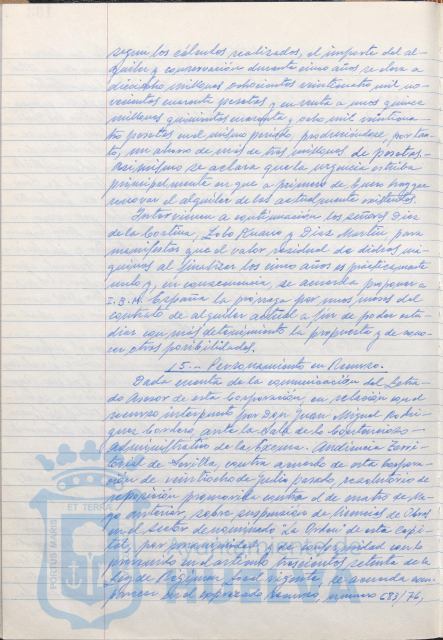 según los cálculos realizados, el importe del al-
quiler y conservación durante cinco años se eleva a
dieciocho millones ochocientos veinticuatro mil no-
vecientas cuarenta pesetas y en venta a unos quince
millones quinientas cuarenta y ocho mil veinticua-
tro pesetas en el mismo periodo, produciéndose, por tan-
to, un ahorro de más de tres millones de pesetas.-
Asimismo se aclara que la urgencia estriba
principalmente en que a primero de Enero hay que
renovar el alquiler de los actualmente existentes.
Intervienen a continuación los señores Díaz
de la Cortina, Lobo Ruano y Díaz Martín para
manifestar que el valor residual de dichas má-
quinas al finalizar los cinco años es prácticamente
nulo y, en consecuencia, se acuerda proponer a
I.B.M. España la prórroga por unos meses del
contrato de alquiler actual a fin de poder estu-
diar con más detenimiento la propuesta y de cono-
cer otras posibilidades.
15.- Personamiento en Recurso.
Dada cuenta de la comunicación del Letra-
do Asesor de esta Corporación, en relación con el
recurso interpuesto por Don Juan Miguel Rodrí-
guez Cordero, ante la Sala de lo Contencioso-
administrativo de la Excma. Audiencia Terri-
torial de Sevilla, contra acuerdo de esta Corpora-
ción de veintiocho de julio pasado, resolutorio de
reposición promovida contra el de cuatro de Ma-
yo anterior, sobre suspensión de licencias de Obras
en el Sector denominado "La Orden" de esta Capi-
tal, por unanimidad y de conformidad con lo
prevenido en el artículo trescientos setenta de la
Ley de Régimen Local vigente, se acuerda com-
parecer en el expresado Recurso, número 683/76,
PORTUS MARIS
ET TERRAE
HUELVA